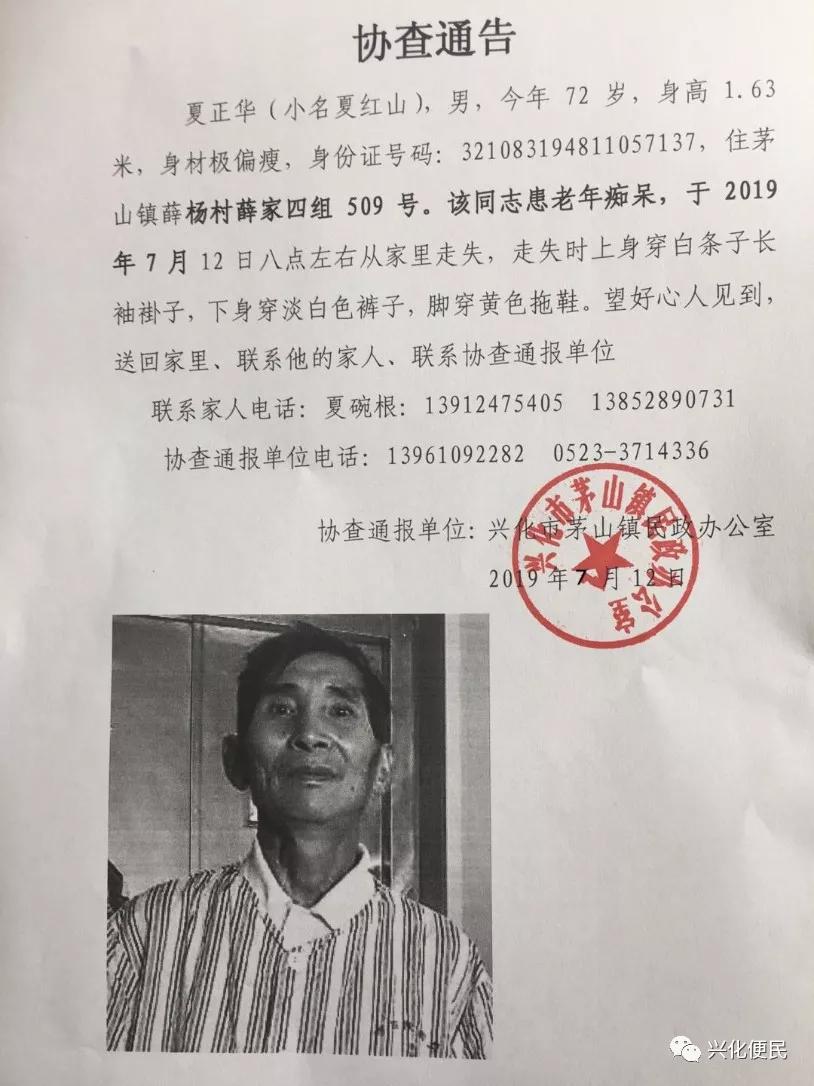 协查通告
夏正华（小名夏红山），男，今年 72 岁，身高 1.63
米，身材极偏瘦，身份证号码：321083194811057137，住茅
山镇薛杨村薛家四组 509 号。该同志患老年痴呆，于 2019
年 7 月 12 日八点左右从家里走失，走失时上身穿白条子长
袖褂子，下身穿淡白色裤子，脚穿黄色拖鞋。望好心人见到，
送回家里、联系他的家人、联系协查通报单位
联系家人电话：夏碗根：13912475405 13852890731
协查通报单位电话：13961092282 0523-3714336
协查通报单位：兴化市茅山镇民政办公室
2019 年 7 月 12 日
兴化市茅山镇民政办公室
兴化便民